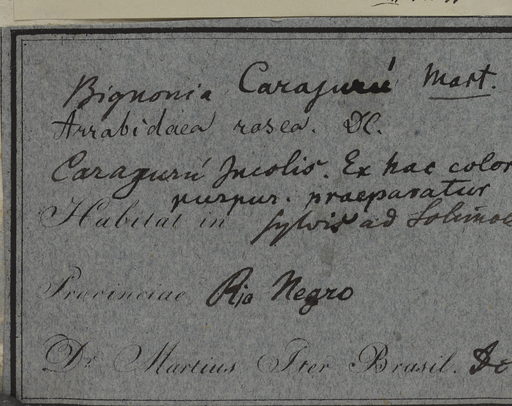 Bignonia Carajurú Mart.
Arrabidaea rosea. DC.
Carajurú Incolis. Ex hac color
purpur. praeparatur
Habitat in sylvis ad Solimoe
Provinciae Rio Negro
Dr. Martius Iter Brasil. De